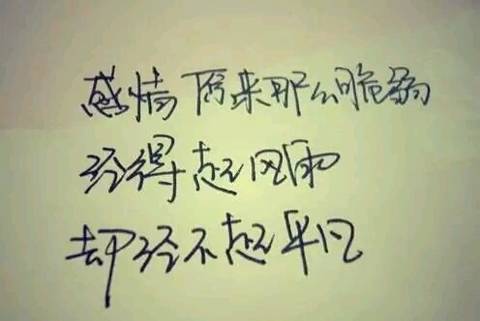 感情原来那么脆弱
经得起风雨
却经不起平凡